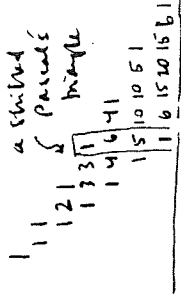 1
1 1
1 2 1
1 3 3 1
1 4 6 4 1
1 5 10 10 5 1
1 6 15 20 15 6 1
a shifted
Pascal's
triangle